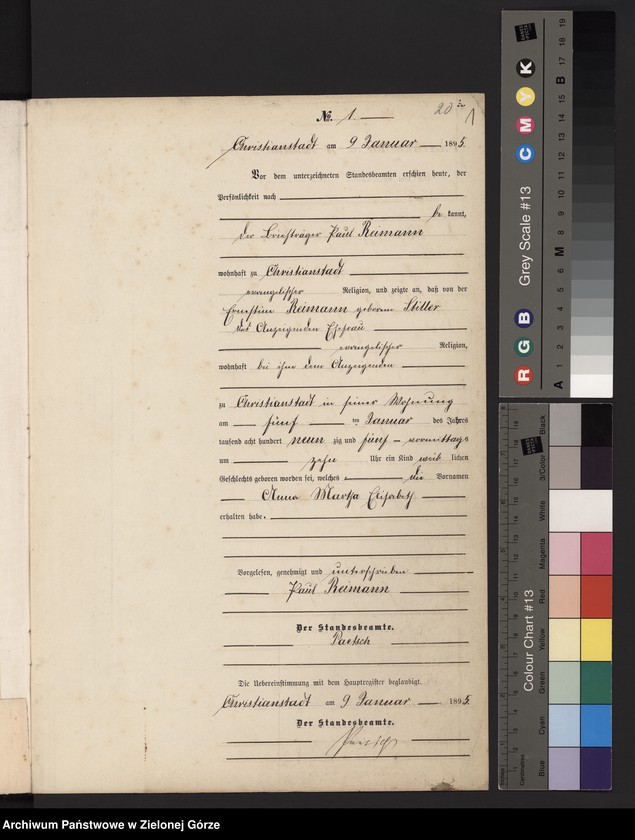 No. 1.
20
1
Christianstadt am 9 Januar 1895.
Vor dem unterzeichneten Standesbeamten erschien heute, der
Persönlichkeit nach
be kannt,
der Briefträger Paul Reimann
wohnhaft zu Christianstadt
evangelischer Religion, und zeigte an, daß von der
Ernestine Reimann geborene Stiller
des Anzeigenden Ehefrau
evangelischer Religion,
wohnhaft bei ihm dem Anzeigenden
zu Christianstadt in seiner Wohnung
am fünf ten Januar des Jahres
tausend acht hundert neun zig und fünf vormittags
um zehn Uhr ein Kind weib lichen
Geschlechts geboren worden sei, welches die Vornamen
Anna Martha Elisabeth
erhalten habe.
Vorgelesen, genehmigt und unterschrieben
Paul Reimann
Der Standesbeamte.
Paetsch
Die Uebereinstimmung mit dem Hauptregister beglaubigt.
Christianstadt am 9 Januar 1895.
Der Standesbeamte.
Paetsch
Grey Scale #13
R G B C M Y K
A 1 2 3 4 5 6 M 8 9 10 11 12 13 14 15 B 17 18 19
Colour Chart #13
Blue Cyan Green Yellow Red Magenta White 3/Color Black
Archiwum Państwowe w Zielonej Górze